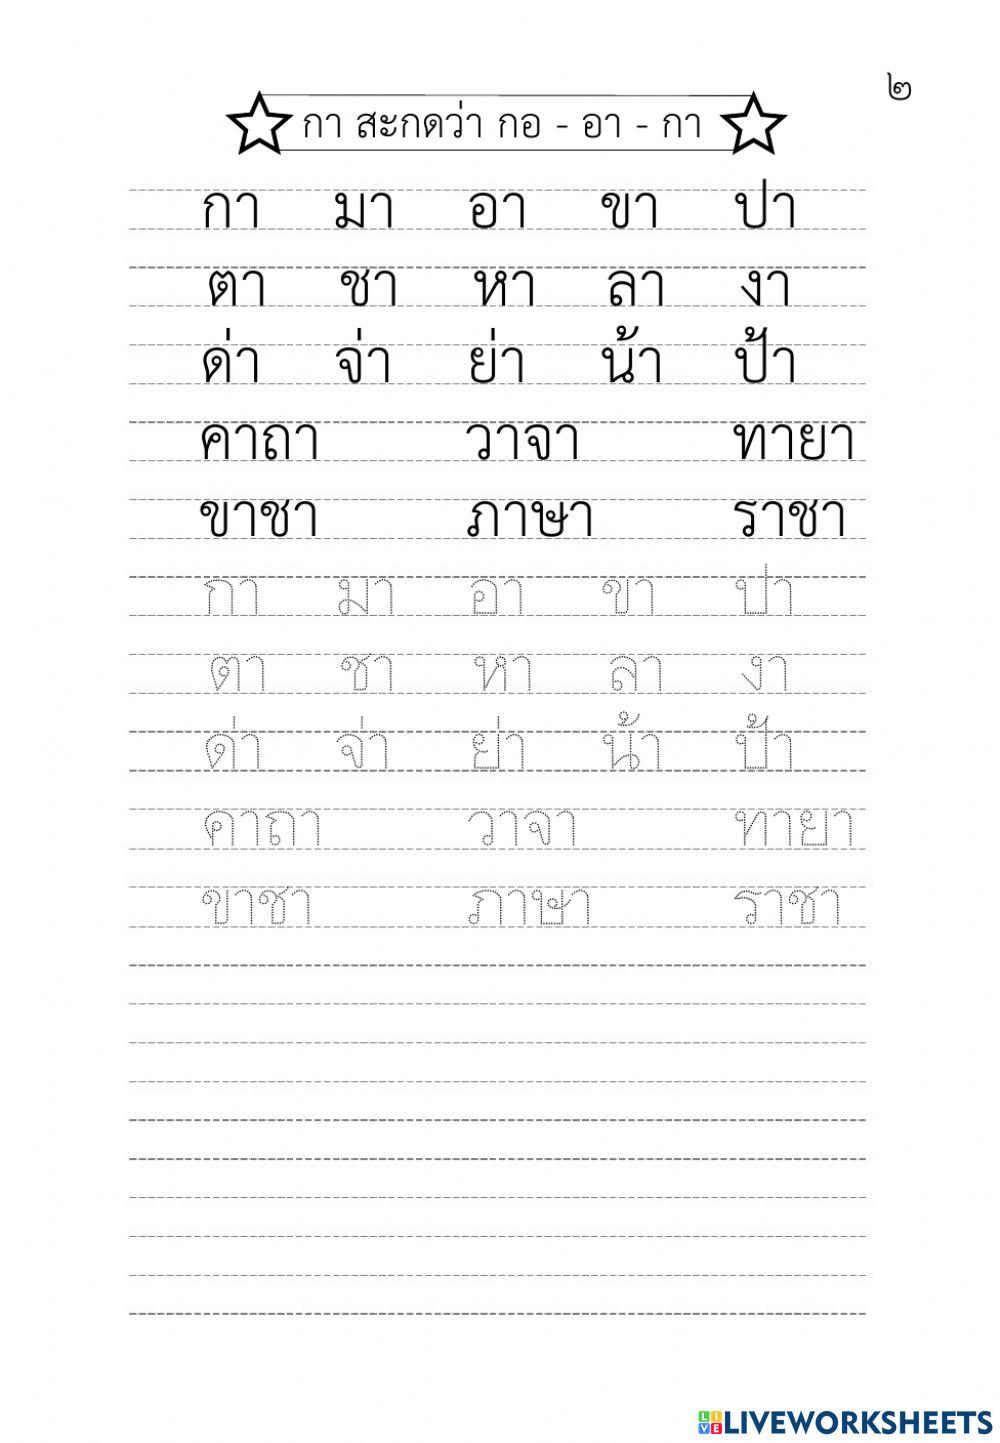 ๒
กา สะกดว่า กอ - อา - กา
กา มา อา ขา ปา
ตา ชา หา ลา งา
ด่า จ่า ย่า น้า ป้า
คาถา วาจา ทายา
ขาชา ภาษา ราชา
กา มา อา ขา ปา
ตา ชา หา ลา งา
ด่า จ่า ย่า น้า ป้า
คาถา วาจา ทายา
ขาชา ภาษา ราชา
LIVE LIVEWORKSHEETS